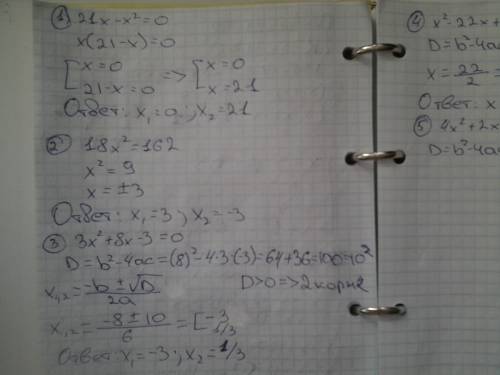 ① 21x-x²=0
x(21-x)=0
[x=0 => [x=0
21-x=0 x=21
Ответ: x₁=0; x₂=21
② 18x²=162
x²=9
x=±3
Ответ: x₁=3; x₂=-3
③ 3x²+8x-3=0
D=b²-4ac=(8)²-4·3·(-3)=64+36=100=10²
x₁,₂=(-b±√D)/2a D>0=>2 корня
x₁,₂=(-8±10)/6=[-3
1/3
Ответ: x₁=-3; x₂=1/3
④ x²-22x+
D=b²-4ac
x=22/2=
Ответ: x
⑤ 4x²+2x
D=b²-4ac